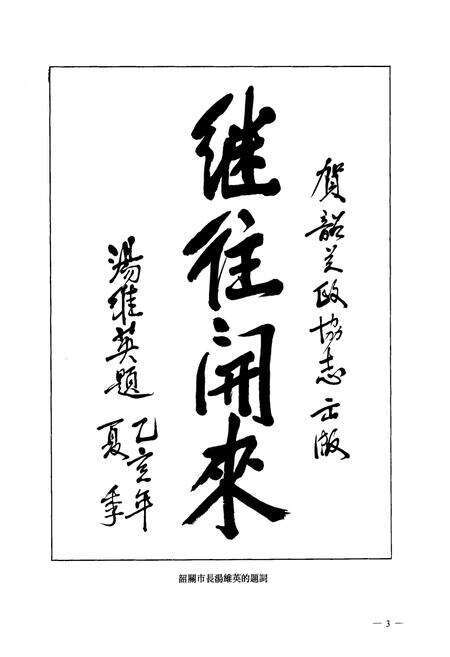 賀韶关政協志出版
继往開來
湯維英題
乙亥年
夏季
韶關市長湯維英的題詞
— 3 —